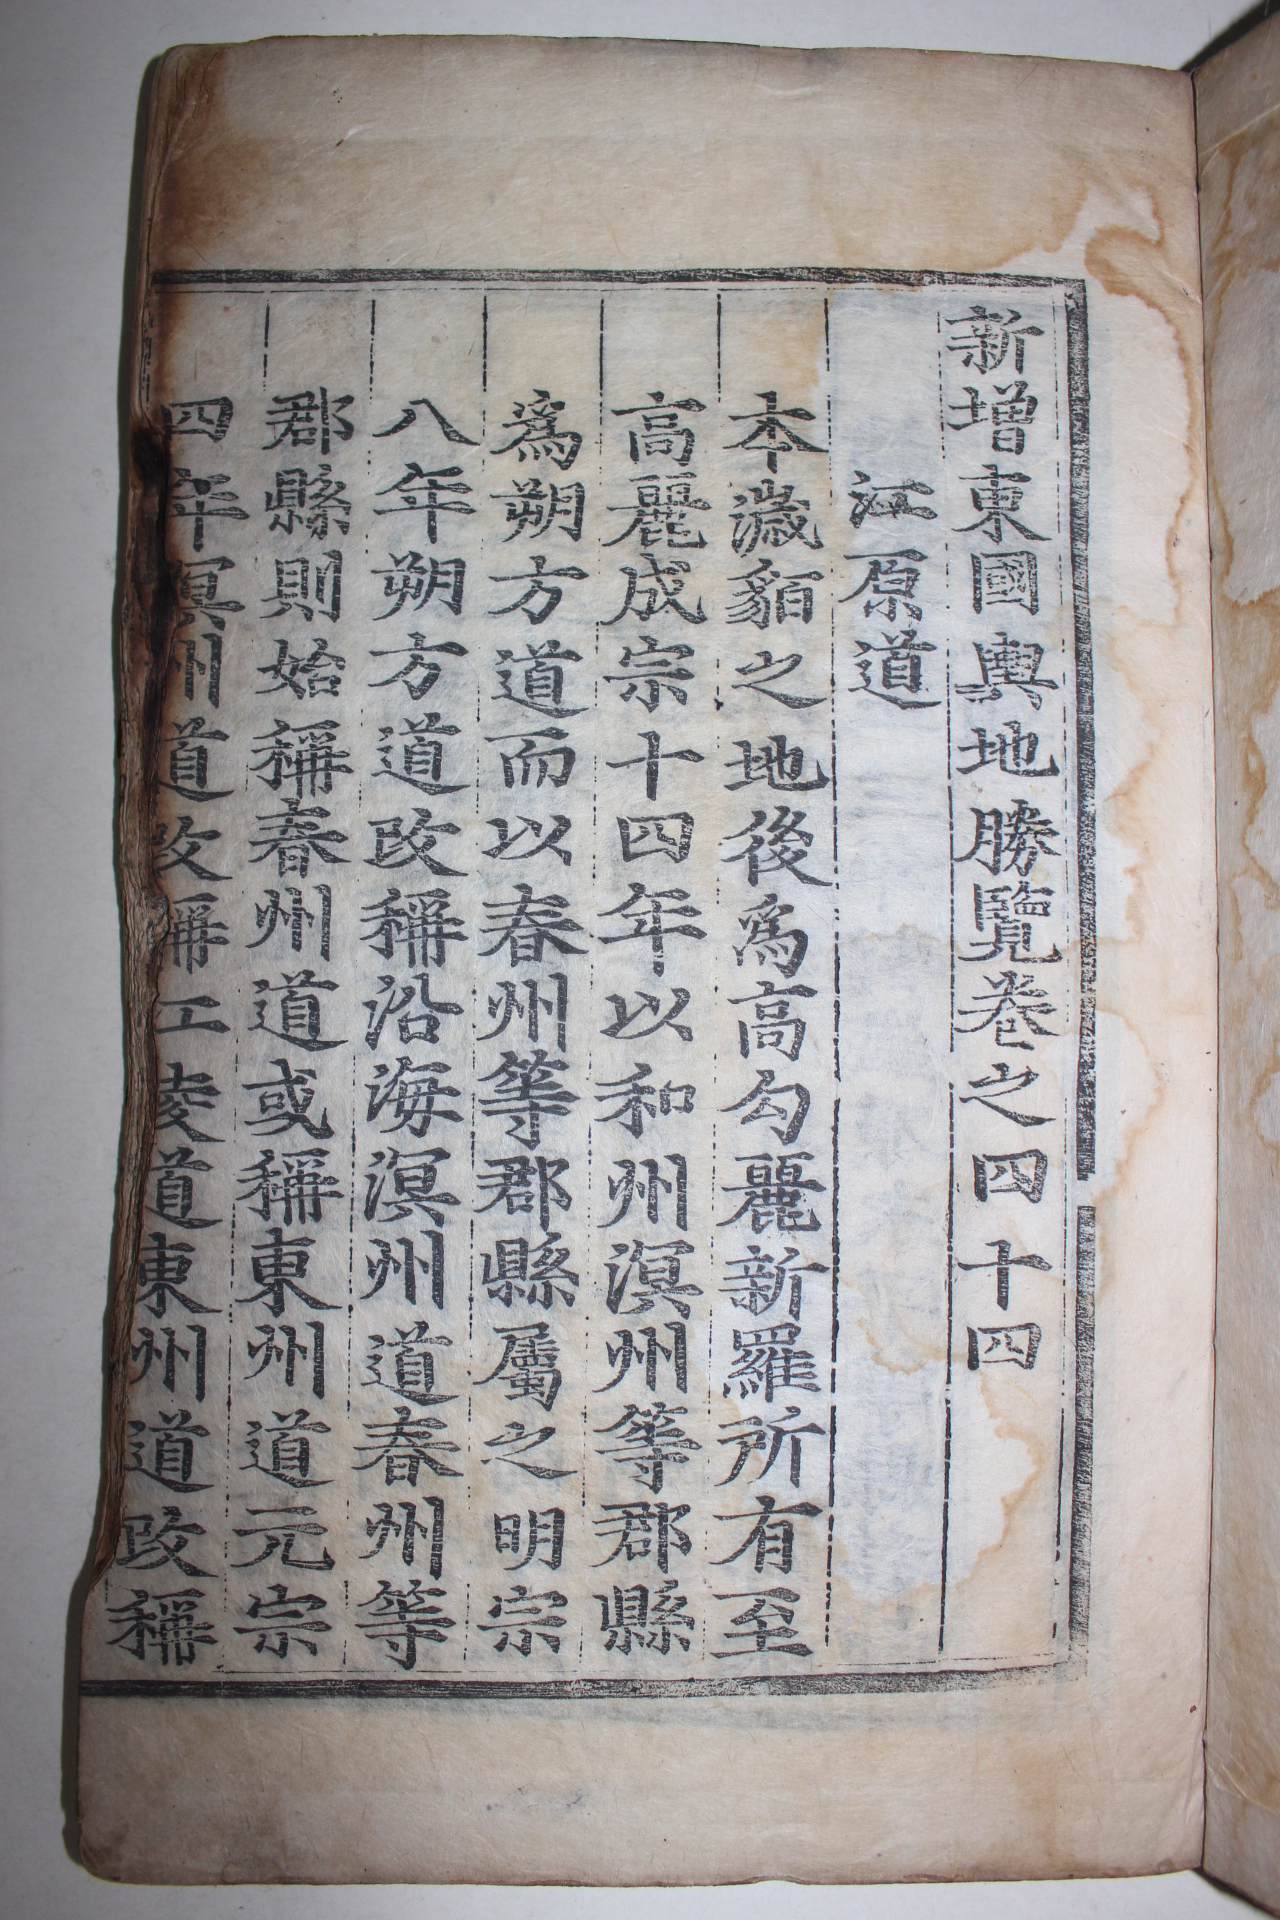 新增東國輿地勝覽卷之四十四
江原道
本濊貊之地後爲高勾麗新羅所有至
高麗成宗十四年以和州溟州等郡縣
爲朔方道而以春州等郡縣屬之明宗
八年朔方道改稱沿海溟州道春州等
郡縣則始稱春州道或稱東州道元宗
四年溟州道改稱江陵道東州道改稱